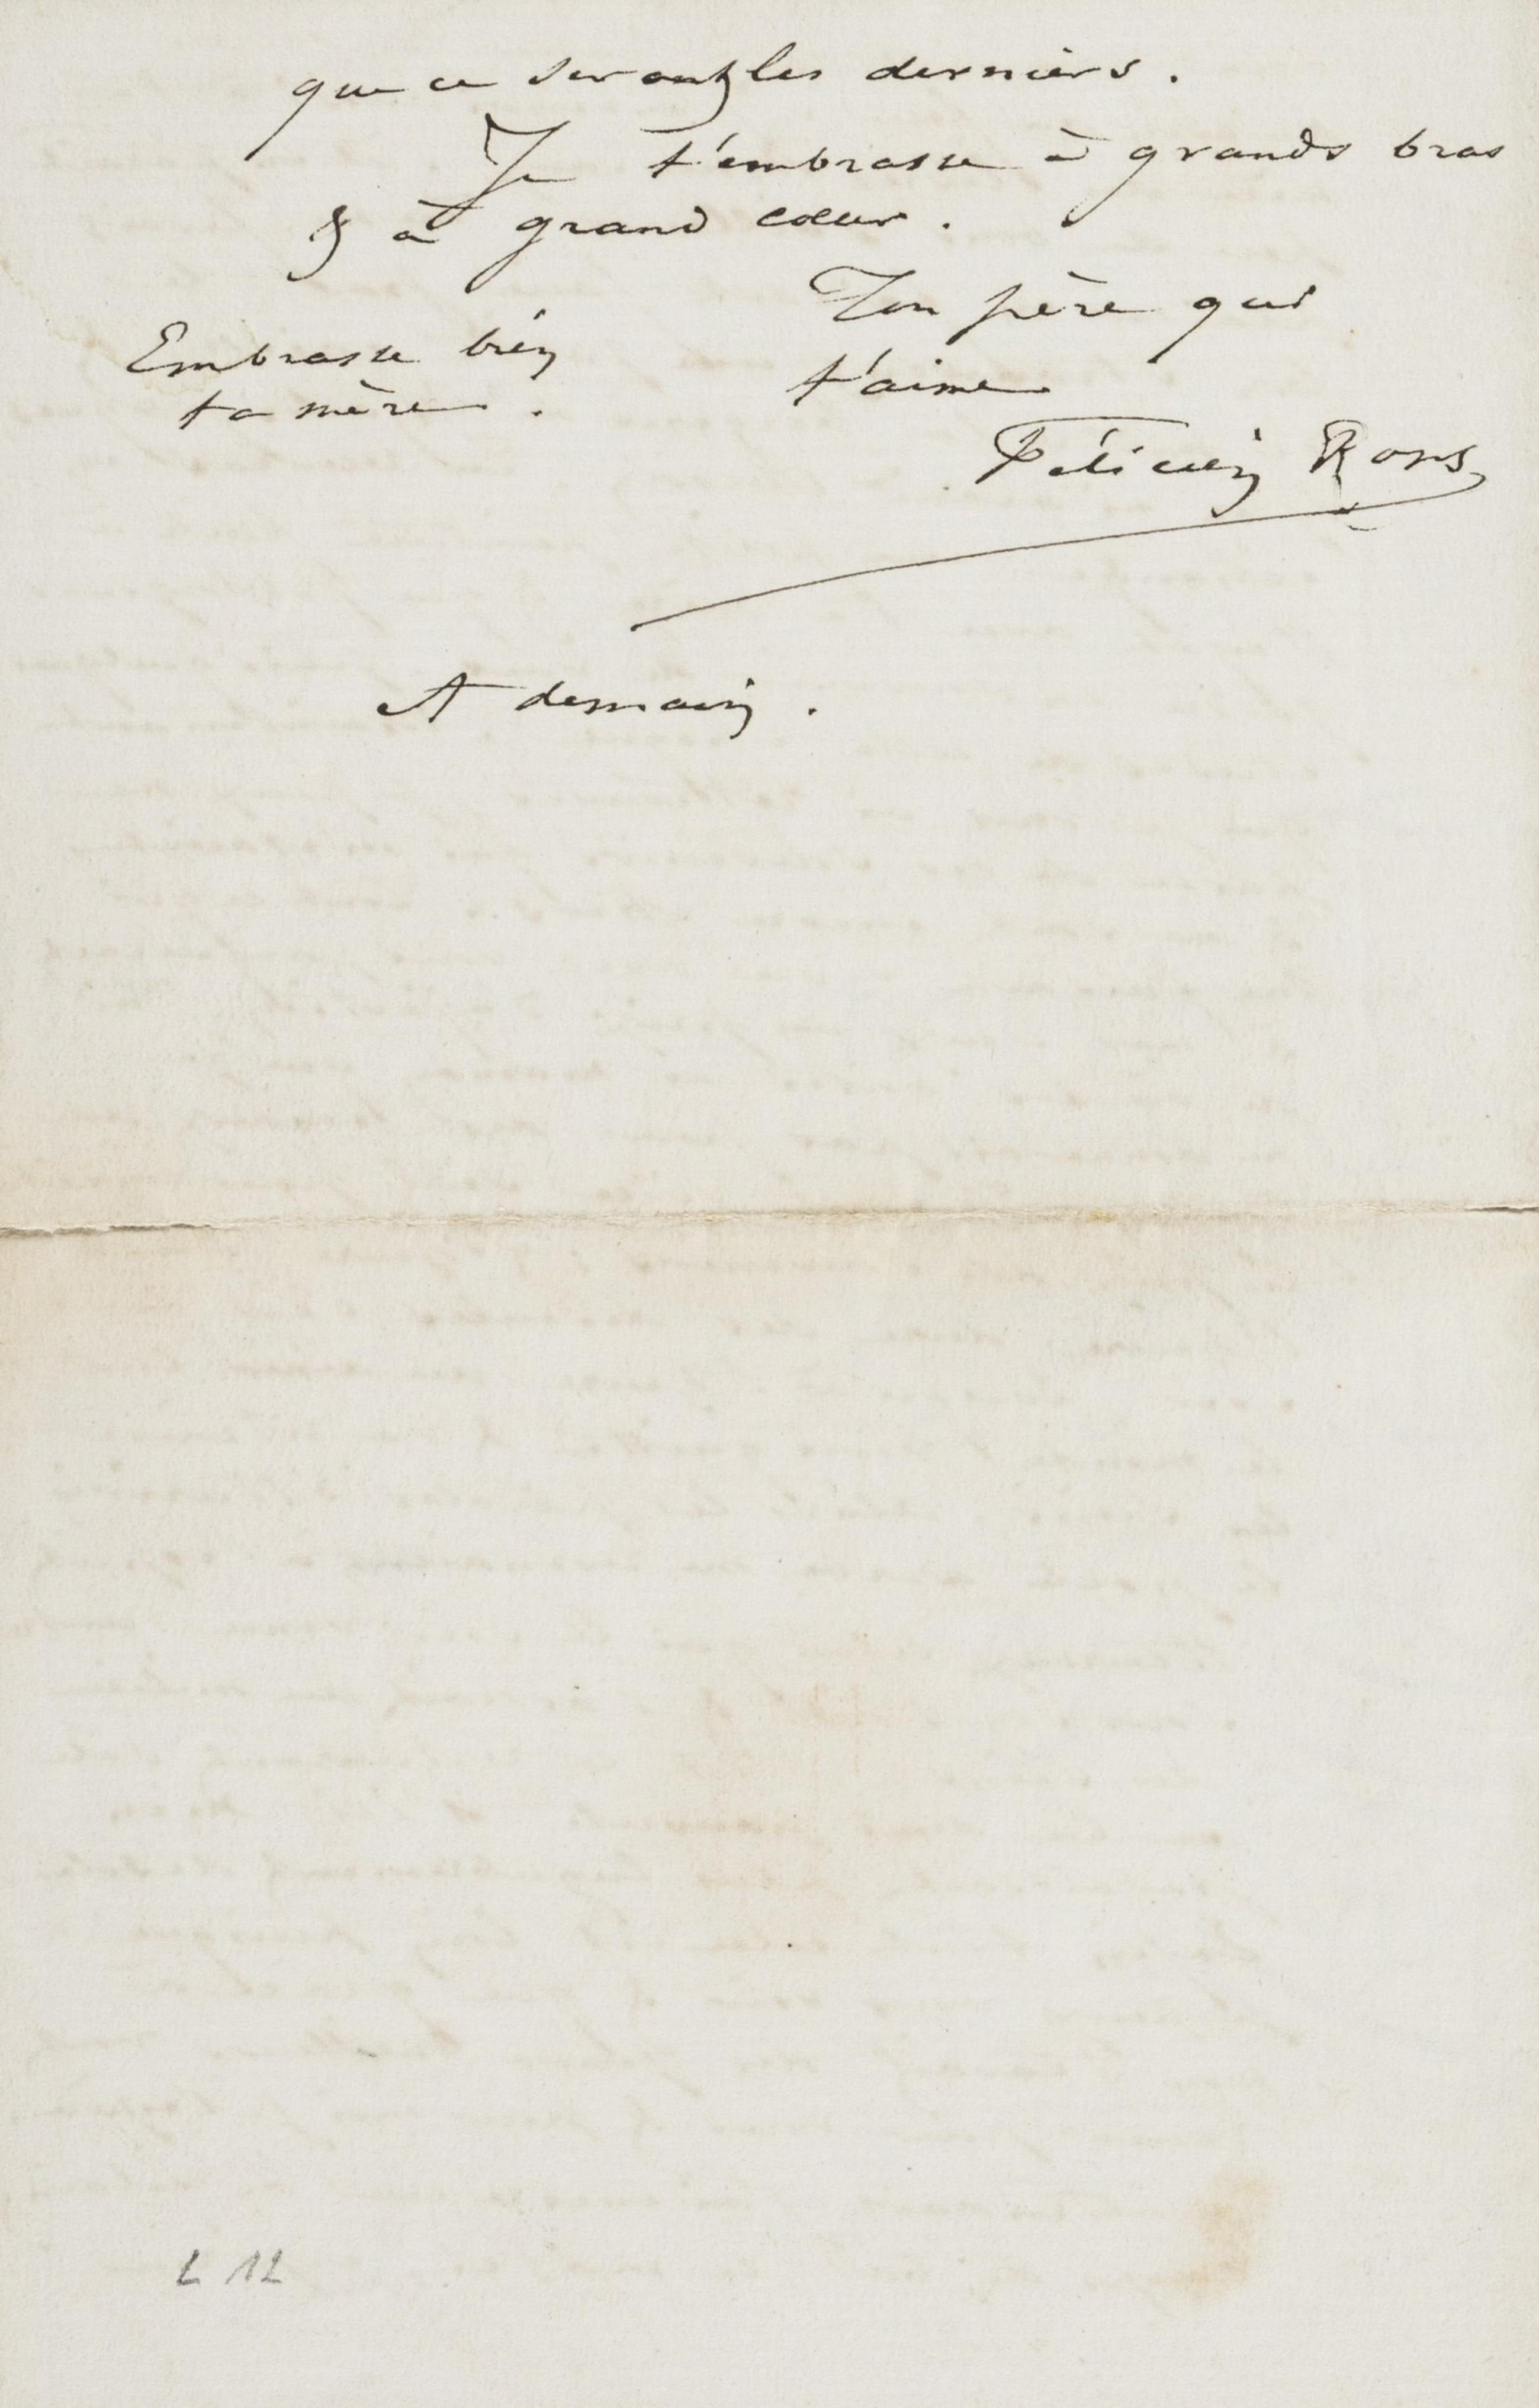 que ce seront les derniers.
Je t'embrasse à grands bras
& à grand cœur.
Ton père qui
t'aime
Embrasse bien
ta mère.
Félicien Rops
A demain.
L 12